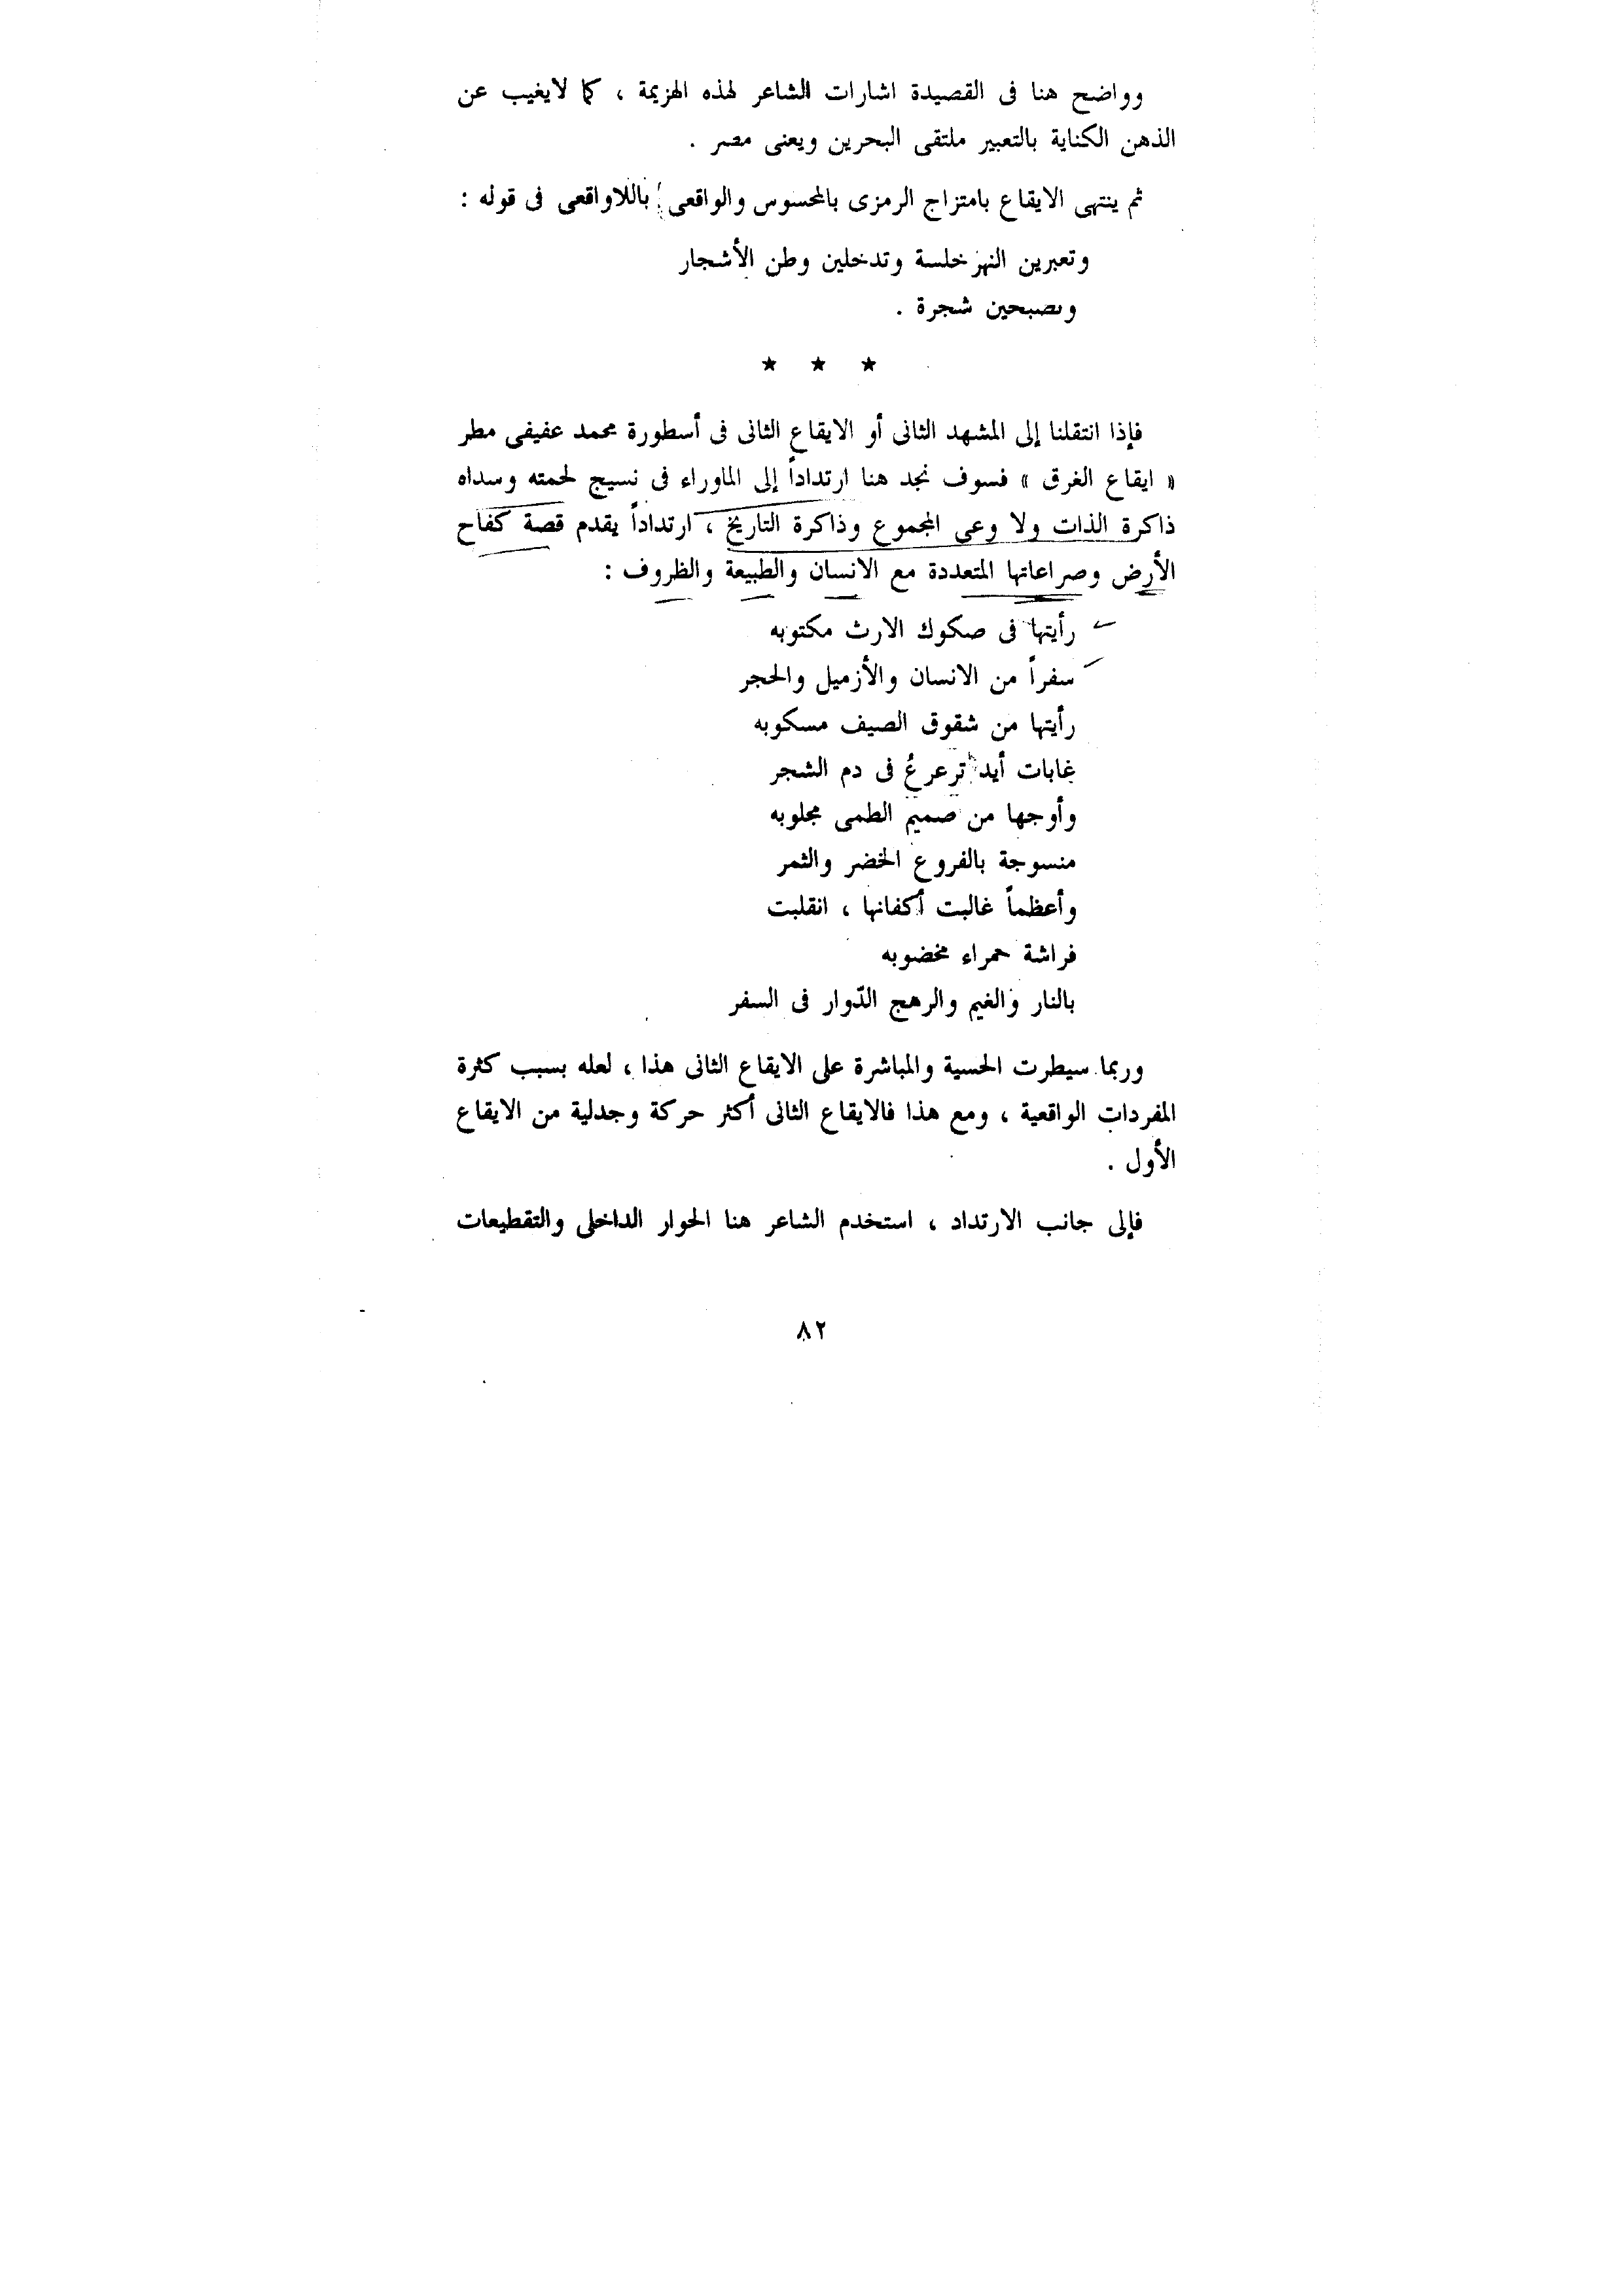 وواضح هنا فى القصيدة اشارات الشاعر لهذه الهزيمة ، كما لايغيب عن
الذهن الكناية بالتعبير ملتقى البحرين ويعنى مصر .
ثم ينتهى الايقاع بامتزاج الرمزى بالمحسوس والواقعى باللاواقعى فى قوله :
وتعبرين النهر خلسة وتدخلين وطن الأشجار
وتصبحين شجرة .
★ ★ ★
فإذا انتقلنا إلى المشهد الثانى أو الايقاع الثانى فى أسطورة محمد عفيفى مطر
« ايقاع الغرق » فسوف نجد هنا ارتداداً إلى الماوراء فى نسيج لحمته وسداه
ذاكرة الذات ولا وعى المجموع وذاكرة التاريخ ، ارتداداً يقدم قصة كفاح
الأرض وصراعاتها المتعددة مع الانسان والطبيعة والظروف :
رأيتها فى صكوك الارث مكتوبه
سفراً من الانسان والأزميل والحجر
رأيتها من شقوق الصيف مسكوبه
غابات أيد ترعرعُ فى دم الشجر
وأوجها من صميم الطمى مجلوبه
منسوجة بالفروع الخضر والثمر
وأعظماً غالبت أكفانها ، انقلبت
فراشة حمراء مخضوبه
بالنار والغيم والرهج الدّوار فى السفر
وربما سيطرت الحسية والمباشرة على الايقاع الثانى هذا ، لعله بسبب كثرة
المفردات الواقعية ، ومع هذا فالايقاع الثانى أكثر حركة وجدلية من الايقاع
الأول .
فإلى جانب الارتداد ، استخدم الشاعر هنا الحوار الداخلى والتقطيعات
٨٢